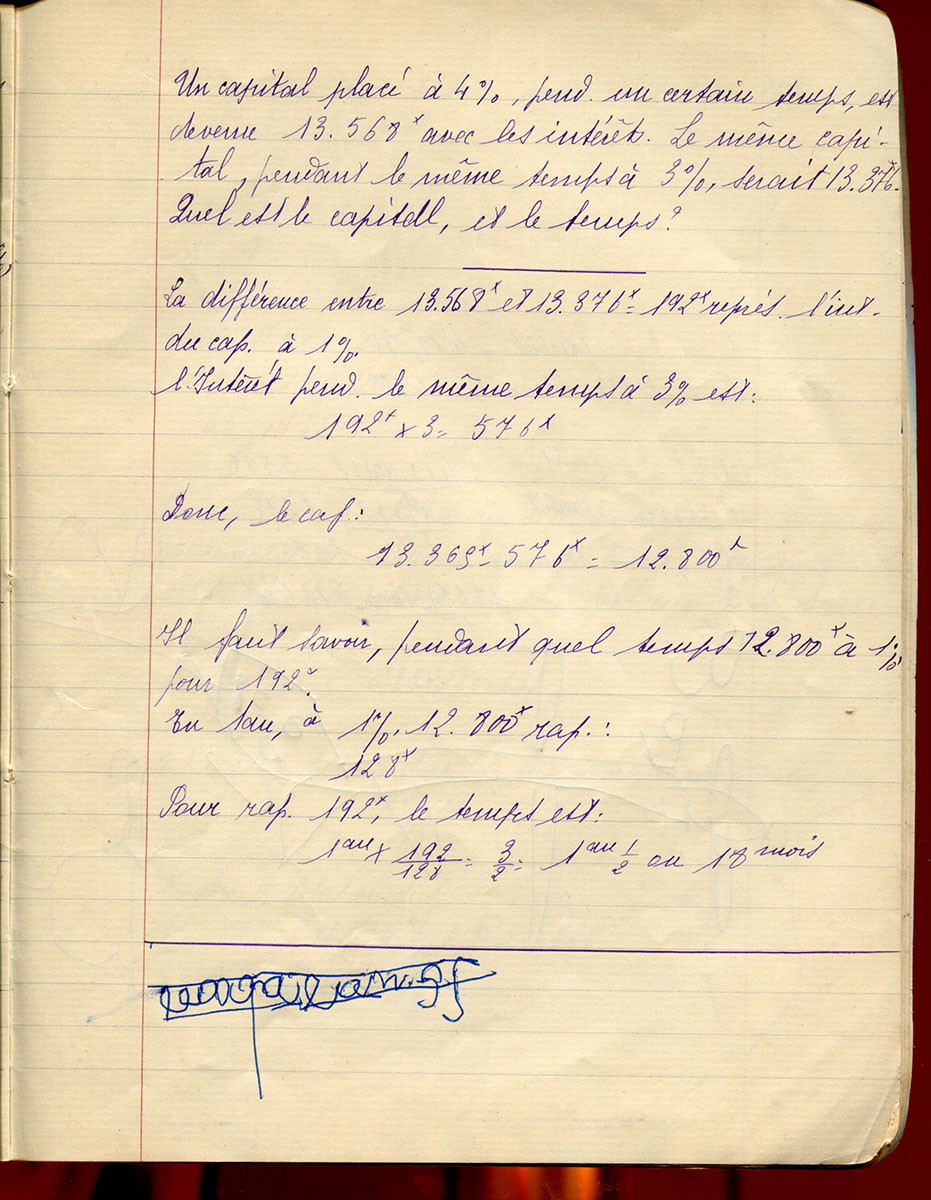 Un capital placé à 4%, pend. un certain temps, est
devenu 13.568ˣ avec les intérêts. Le même capi-
tal, pendant le même temps à 3%, serait 13.376ˣ.
Quel est le capitall, et le temps?
La différence entre 13.568ˣ et 13.376ˣ = 192ˣ représ. l'int.
du cap. à 1%.
l'Intérêt pend. le même temps à 3% est:
192ˣ × 3 = 576ˣ
Donc, le cap:
13.369ˣ - 576ˣ = 12.800ˣ
Il faut savoir, pendant quel temps 12.800ˣ à 1%
pour 192ˣ.
En 1au, à 1%. 12.800ˣ rap.:
128ˣ
Pour rap. 192ˣ, le temps est:
1 an × 192/128 = 3/2 = 1 an 1/2 ou 18 mois